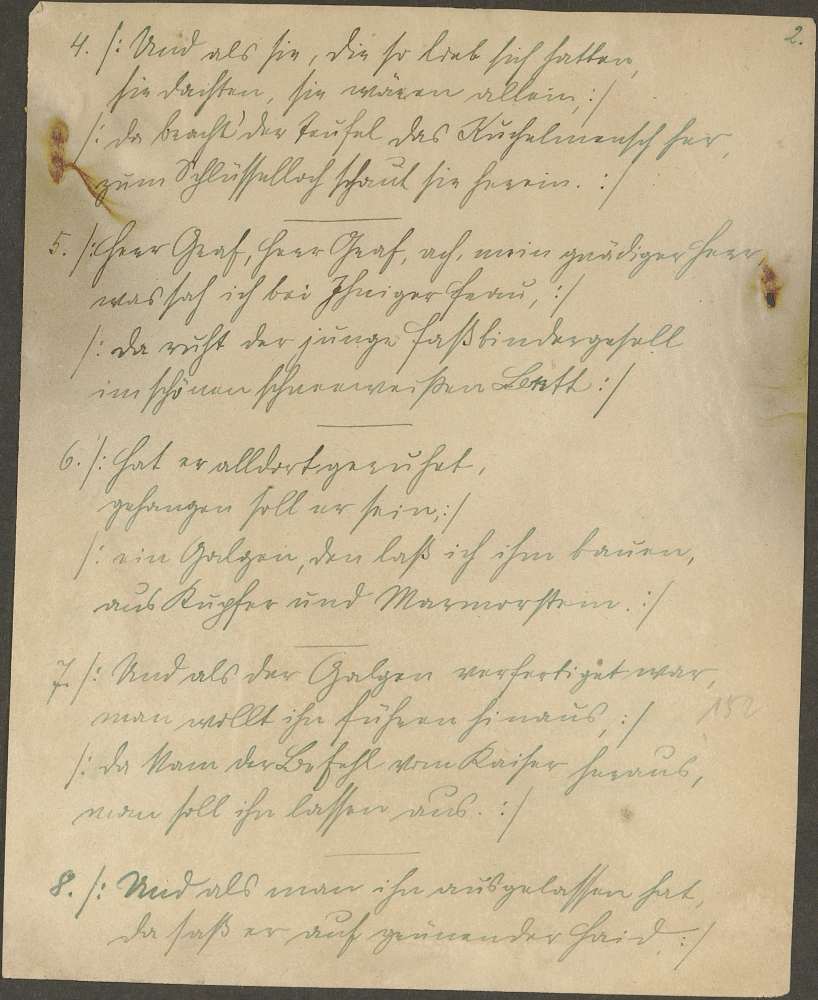 2.
4. /: Und als sie, die so lieb sich hatten,
sie dachten, sie wären allein, :/
/: da bracht' der Teufel das Kuchelmensch her,
zum Schlüsselloch schaut sie herein. :/
5. /: Herr Graf, Herr Graf, ach, mein gnädiger Herr,
was sah ich bei Ihniger Frau, :/
/: da ruht der junge Faßbindergesell
im schönen schneeweißen Bett :/
6. /: Hat er alldort geruhet,
gehangen soll er sein, :/
/: ein Galgen, den laß ich ihm bauen,
aus Kupfer und Marmorstein. :/
7. /: Und als der Galgen verfertiget war,
man wollt ihn führen hinaus, :/
152
/: da kam der Befehl vom Kaiser heraus,
man soll ihn lassen aus. :/
8. /: Und als man ihn ausgelassen hat,
da saß er auf grünender Haid, :/